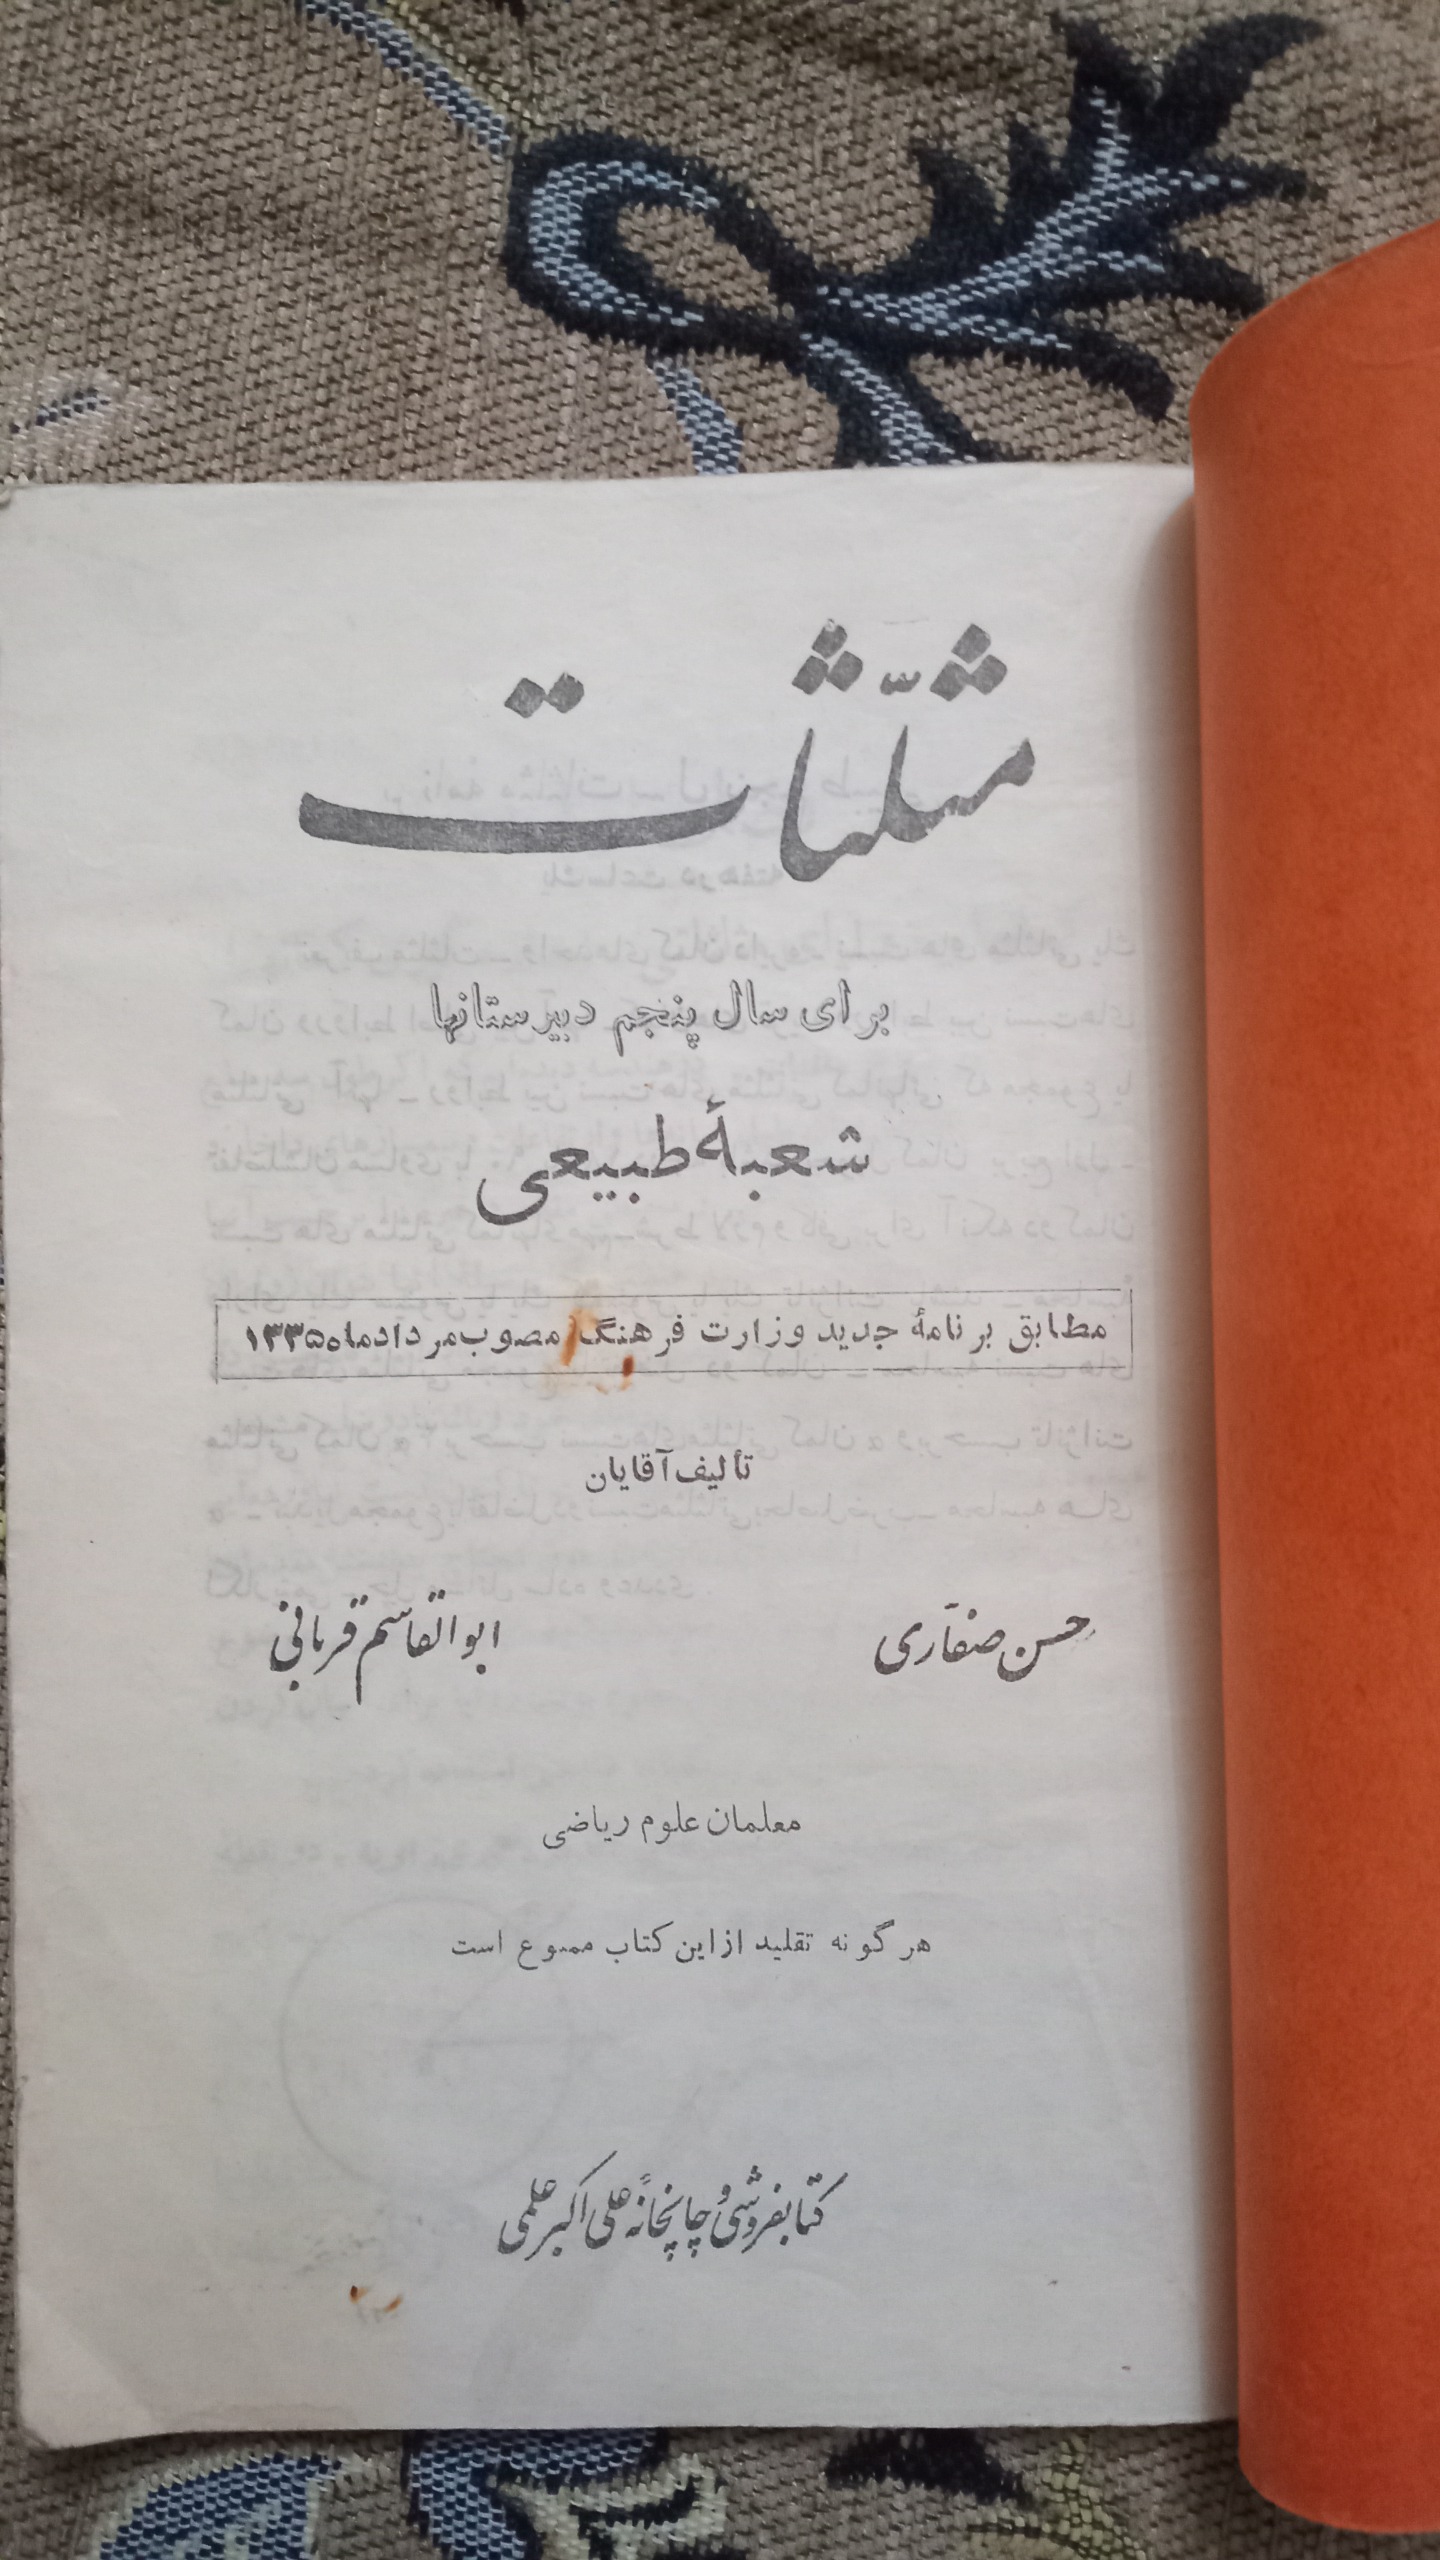 مثلّثات
برای سال پنجم دبیرستانها
شعبهٔ طبیعی
مطابق برنامهٔ جدید وزارت فرهنگ مصوب مردادماه ۱۳۳۵
تألیف آقایان
حسن صفّاری
ابوالقاسم قربانی
معلمان علوم ریاضی
هر گونه تقلید از این کتاب ممنوع است
کتابفروشی و چاپخانهٔ علی اکبر علمی